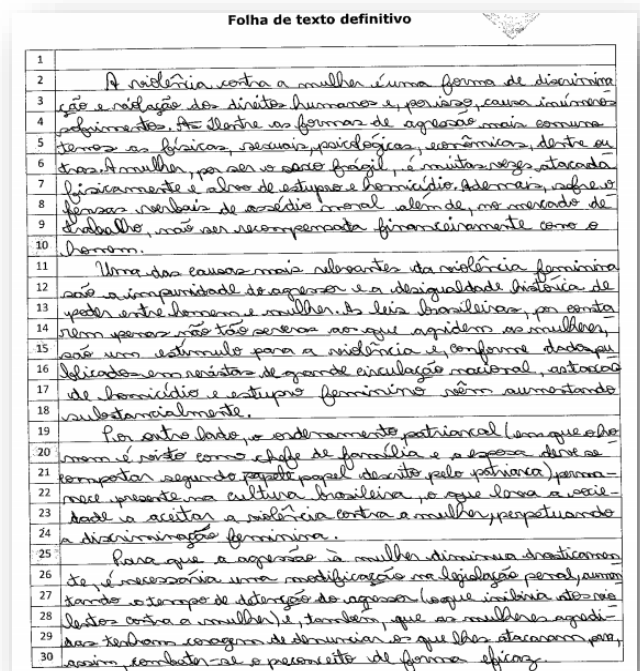 Folha de texto definitivo
1
2 A violência contra a mulher é uma forma de discrimina
3 ção e violação dos direitos humanos e, por isso, causa inúmeros
4 sofrimentos. As dentre as formas de agressão mais comuns
5 temos as físicas, sexuais, psicológicas, econômicas, dentre ou
6 tras. A mulher, por ser o sexo frágil, é muitas vezes atacada
7 fisicamente e alvo de estupro e homicídio. Ademais, sofre o
8 fensas verbais de assédio moral além de, no mercado de
9 trabalho, não ser recompensada financeiramente como o
10 homem.
11 Uma das causas mais relevantes da violência feminina
12 são a impunidade do agressor e a desigualdade histórica de
13 poder entre homem e mulher. As leis brasileiras, por consta
14 rem penas não tão severas aos que agridem as mulheres,
15 são um estímulo para a violência e, conforme dados pu
16 blicados em revistas de grande circulação nacional, as taxas
17 de homicídio e estupro feminino vêm aumentando
18 substancialmente.
19 Por outro lado, o ordenamento patriarcal (em que o ho
20 mem é visto como chefe de família e a esposa deve se
21 comportar segundo papel descrito pelo patriarca), perma-
22 nece presente na cultura brasileira, o que leva a socie-
23 dade a aceitar a violência contra a mulher, perpetuando
24 a discriminação feminina.
25 Para que a agressão à mulher diminua drasticamen
26 te, é necessária uma modificação na legislação penal, aumen
27 tando o tempo de detenção do agressor (o que inibiria atos vio
28 lentos contra a mulher) e, também, que as mulheres agredi-
29 das tenham coragem de denunciar os que lhes atacaram para,
30 assim, combater-se o preconceito de forma eficaz.